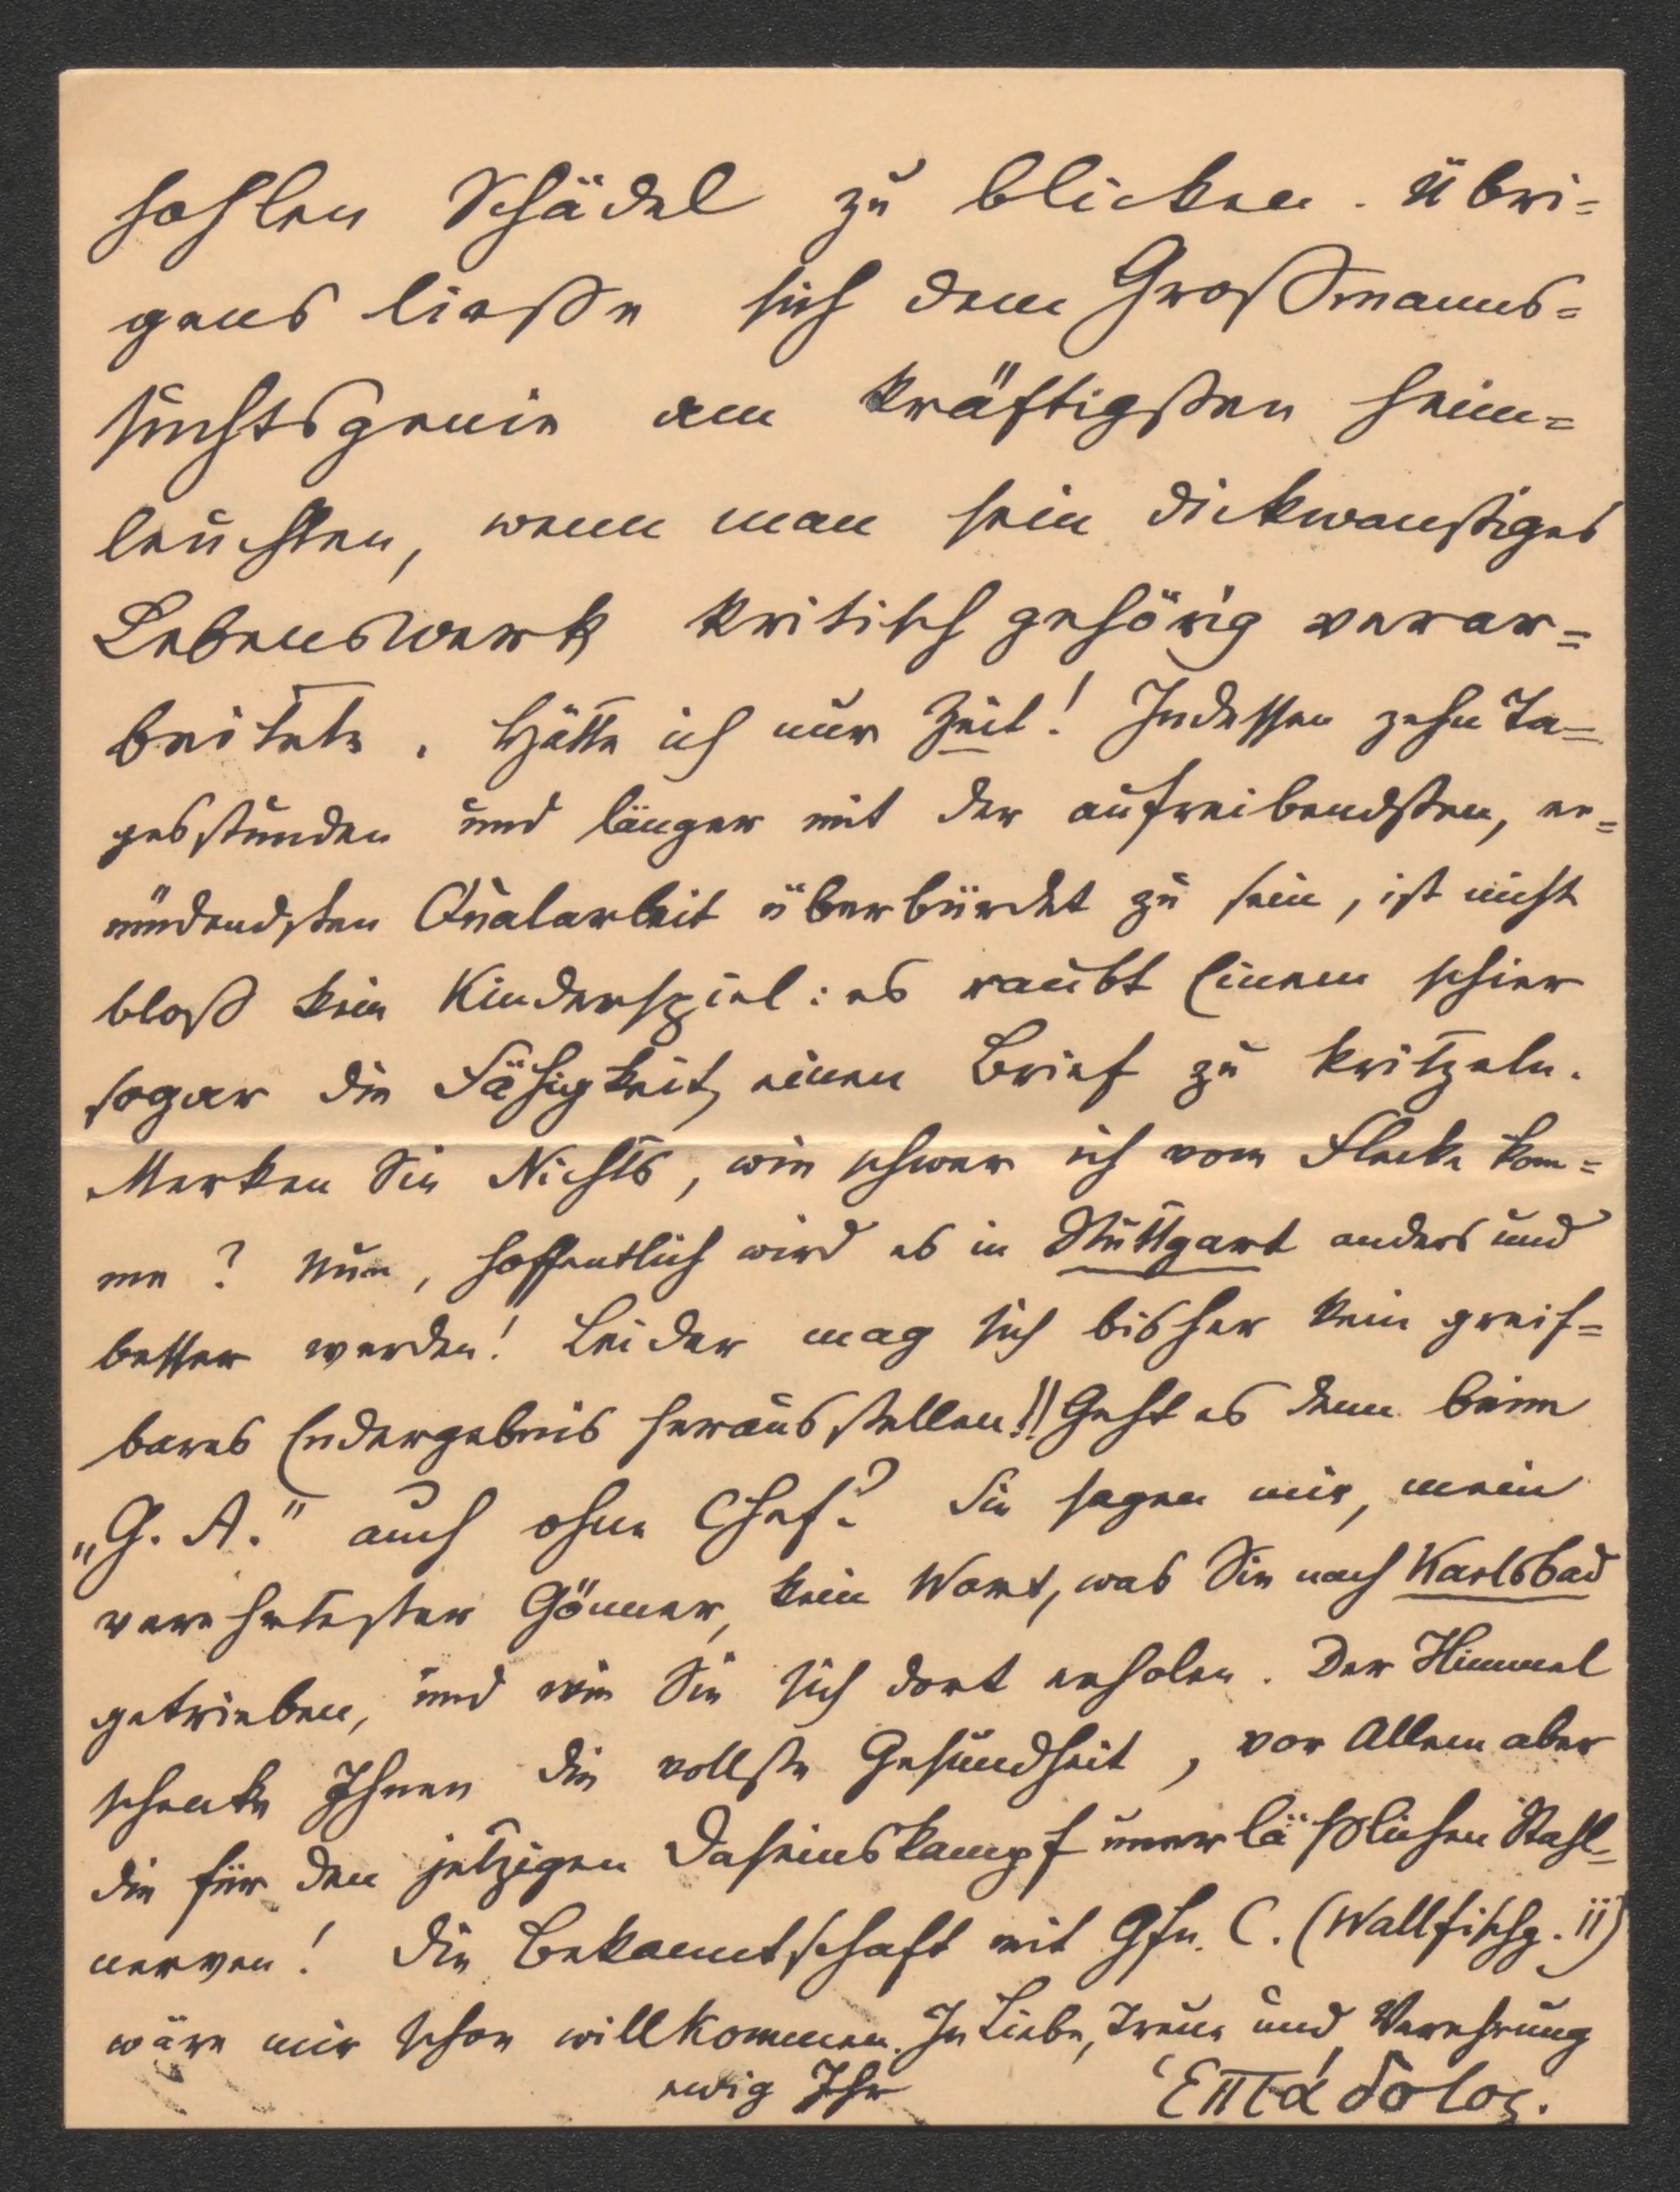 hohlen Schädel zu blicken. Übri=
gens ließe sich dem Großmanns=
suchtsgenie am kräftigsten heim=
leuchten, wenn man sein dickwanstiges
Lebenswerk kritisch gehörig verar=
beitete. Hätte ich nur Zeit! Indessen zehn Ta=
gesstunden und länger mit der aufreibendsten, er=
müdendsten Qualarbeit überbürdet zu sein, ist nicht
bloß kein Kinderspiel: es raubt Einem schier
sogar die Fähigkeit, einen Brief zu kritzeln.
Merken Sie Nichts, wie schwer ich vom Flecke kom=
me? Nun, hoffentlich wird es in Stuttgart anders und
besser werden! Leider mag sich bisher kein greif=
bares Endergebnis herausstellen!! Geht es denn beim
„G. A." auch ohne Chef? Sie sagen mir, mein
verehrtester Gönner, kein Wort, was Sie nach Karlsbad
getrieben, und wie Sie sich dort erholen. Der Himmel
schenke Ihnen die vollste Gesundheit, vor Allem aber
die für den jetzigen Daseinskampf unerläßlichen Stahl=
nerven! Die Bekanntschaft mit Gfn. C. (Wallfischg. 11)
wäre mir schon willkommen. In Liebe, Treue und Verehrung
ewig Ihr Ἑπτάδολος.